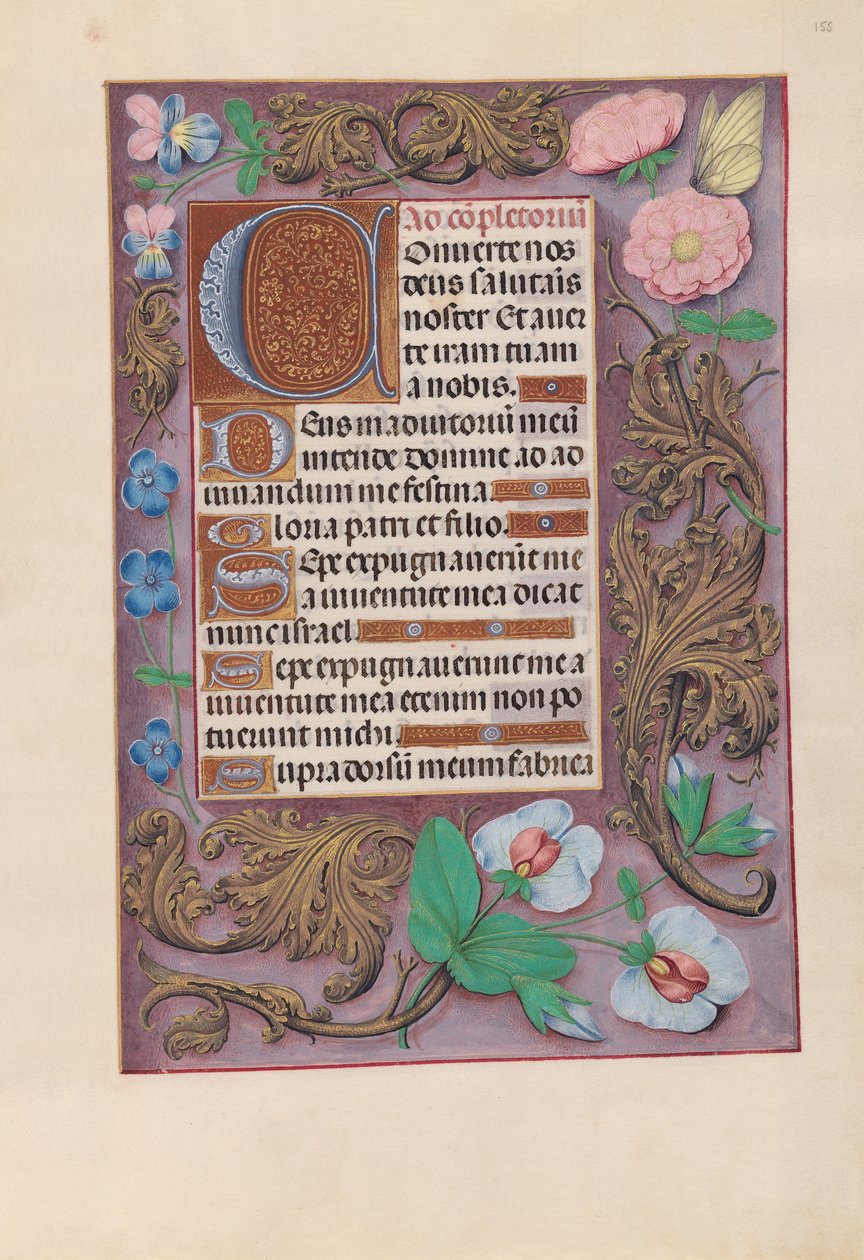 155
Ad cōpletoriū
Conuerte nos
deus salutaīs
noster Et auer
te iram tuam
a nobis.
Deus in adiutoriū meū
intende domine ad ad
iuuandum me festina.
Gloria patri et filio.
Sepe expugnauerūt me
a iuuentute mea dicat
nunc israel.
Sepe expugnauerunt me a
iuuentute mea etenim non po
tuerunt michi.
Supra dorsū meum fabrica